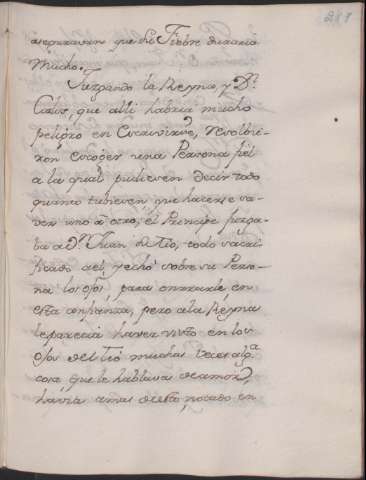 aseguravan que la Fiebre duraria
mucho.
Juzgando la Reyna, y Dⁿ
Carlos, que alli habria mucho
peligro en escrivirse, resolvie-
ron escoger una Persona fiel
a la qual pudiesen decir todo
quanto tubiesen, que hacerse sa-
ver uno a otro; el Principe juzga-
ba a Dⁿ Juan de tio, todo sacri-
ficado a el, y echó sobre su Perso-
na los ojos para emplearle en
esta confianza, pero a la Reyna
le parecia haver visto en los
ojos del tio muchas veces alga
cosa que le hablava de amor,
havia a mas de esto, notado en